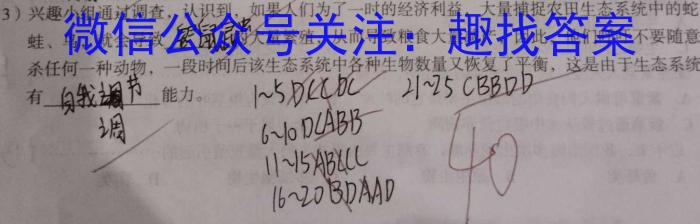 3）兴趣小组通过调查，认识到，如果人们为了一时的经济利益，大量捕捉农田生态系统中的蛇
蛙、
微信公众号关注：趣找答案
杀任何一种动物，一段时间后该生态系统中各种生物数量又恢复了平衡，这是由于生态系统
有 自我调节 能力。
调
1~5 DCCDC
6~10 DCABB
11~15 ABCCC
16~20 BDAAD
21~25 CBBDD
10